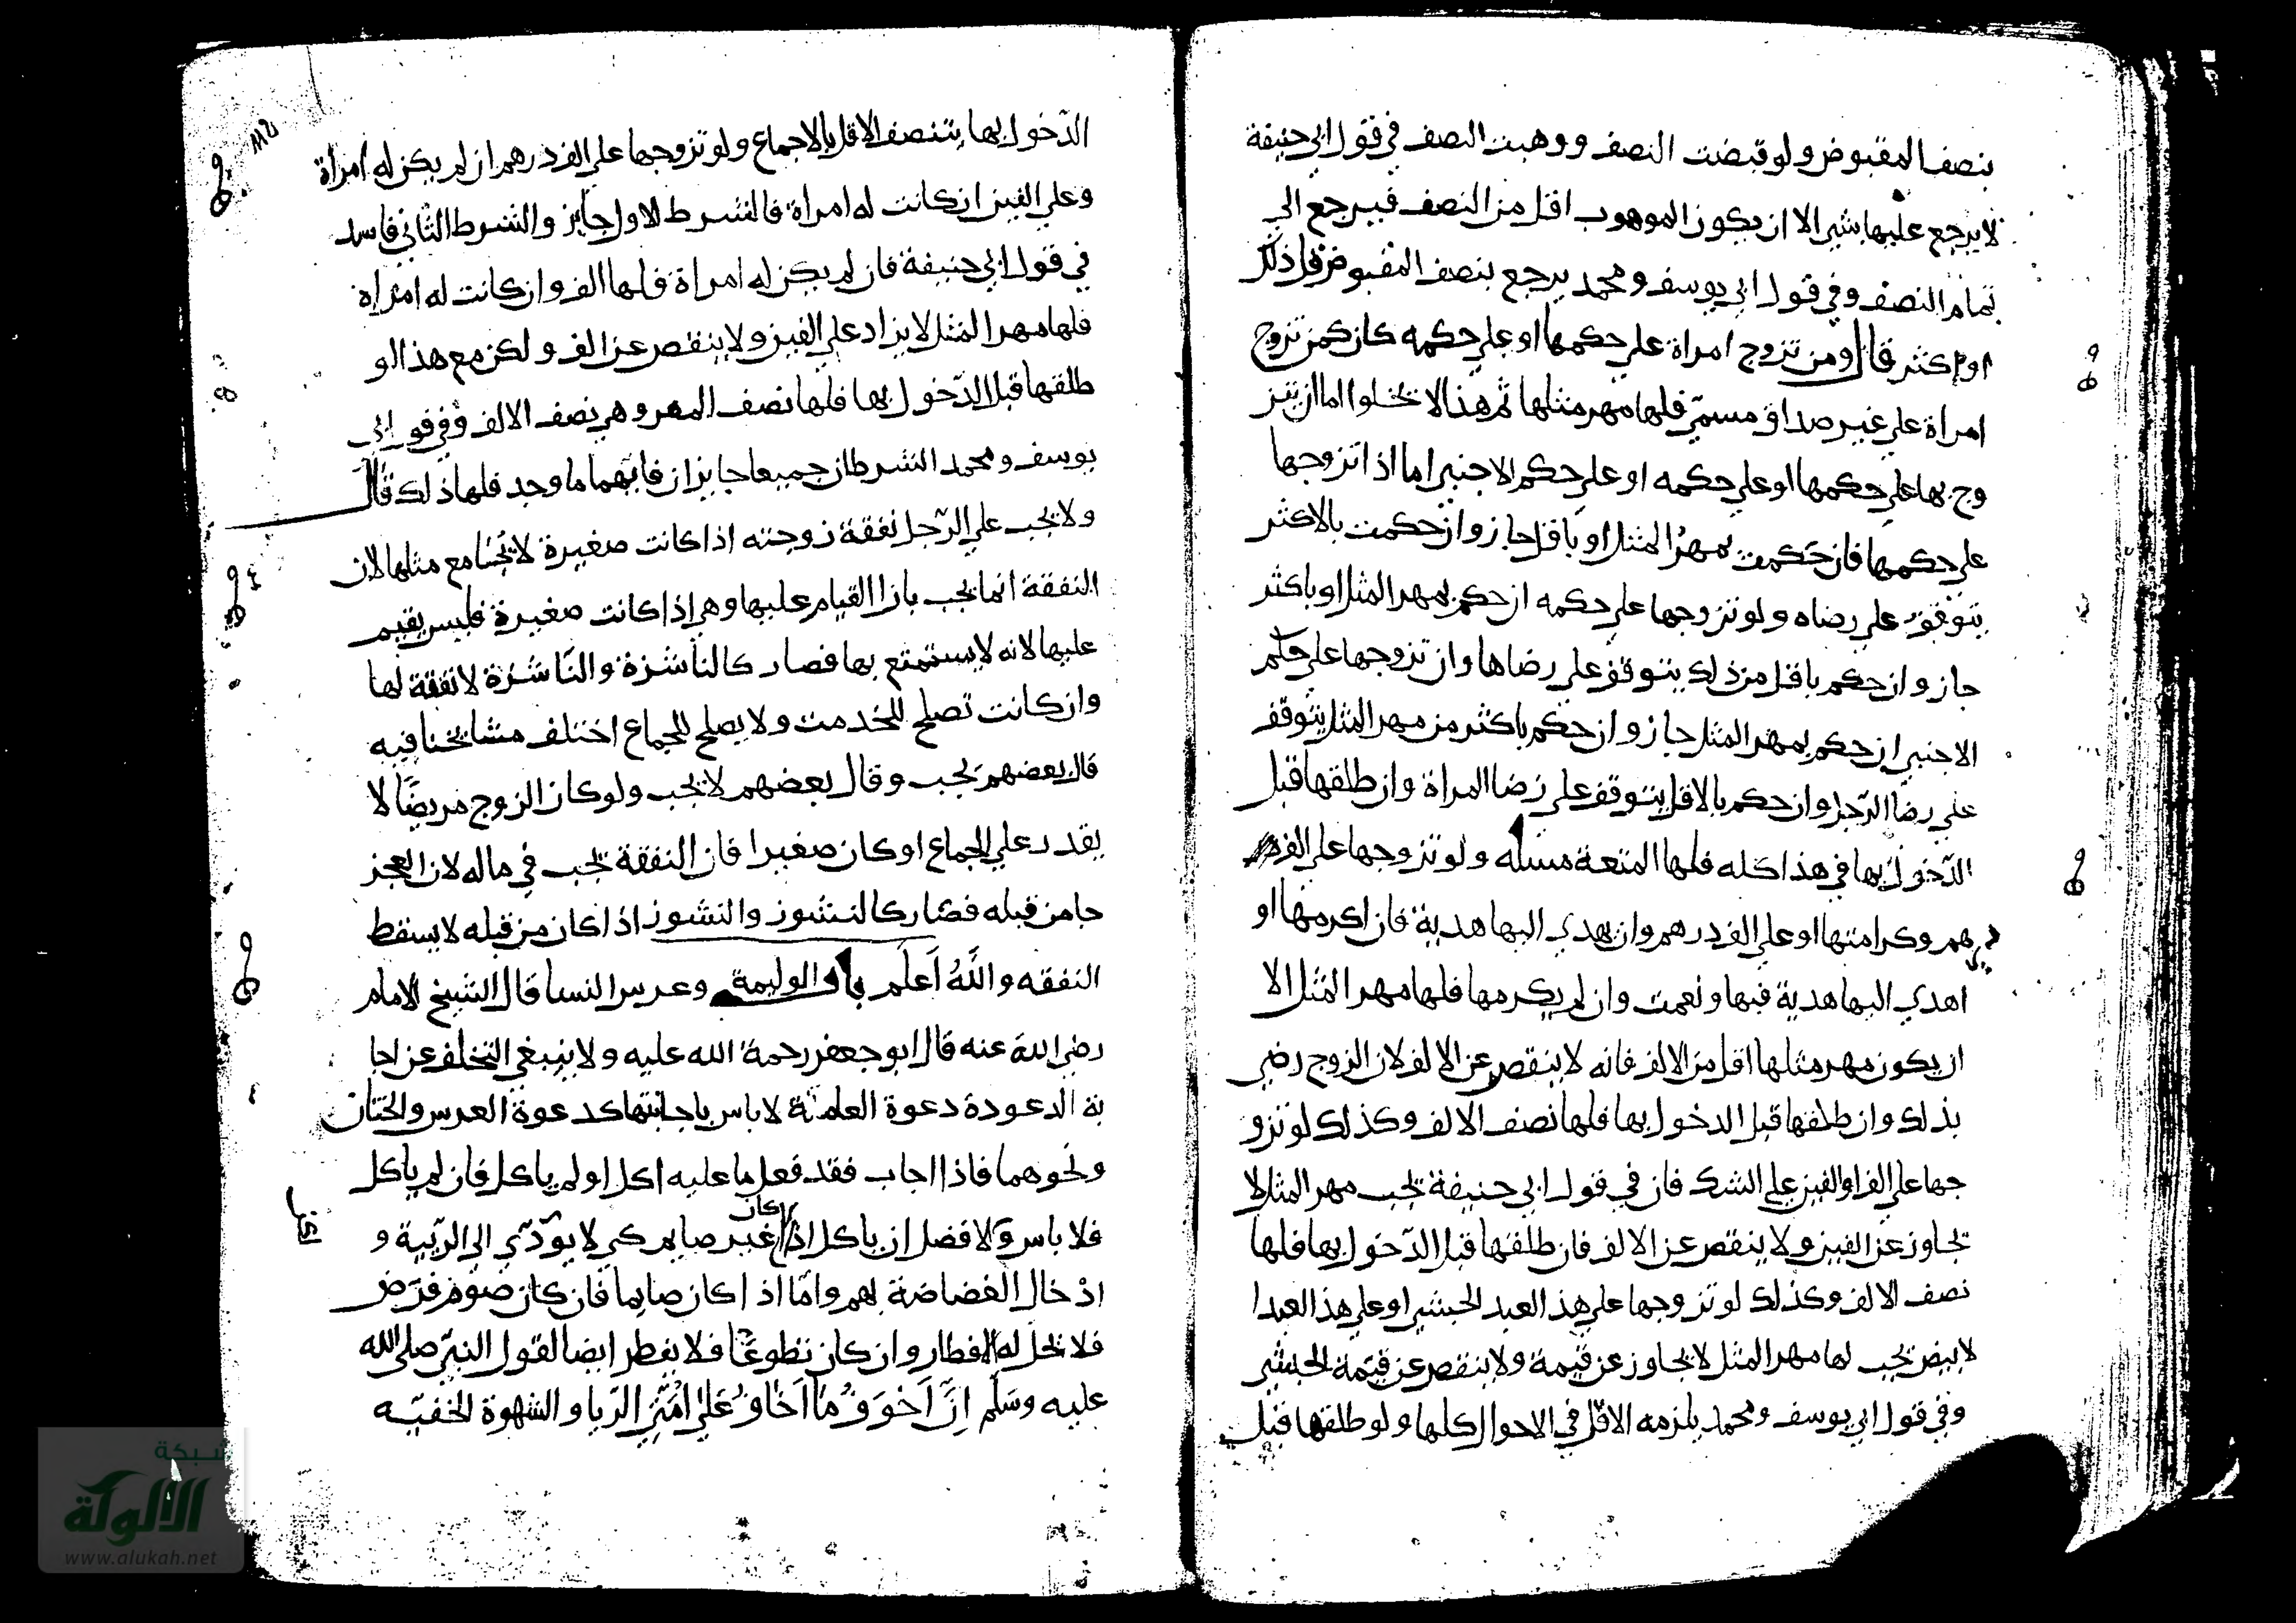 بنصف المقبوض ولو قبضت النصف ووهبت النصف في قول ابي حنيفة
لا يرجع عليها بشي الا ان يكون الموهوب اقل من النصف فيرجع الي
تمام النصف وفي قول ابي يوسف ومحمد يرجع بنصف المقبوض قل ذلك
او اكثر قال ومن تزوج امراة علي حكمها او علي حكمه كان كمن تزوج
امراة علي غير صداق مسمي فلها مهر مثلها ثم هذا لا يخلوا اما ان يتز
وج بها علي حكمها او علي حكمه او علي حكم الاجنبي اما اذا تزوجها
علي حكمها فان حكمت بمهر المثل او باقل جاز وان حكمت بالاكثر
يتوقف علي رضاه ولو تزوجها علي حكمه ان حكم بمهر المثل او باكثر
جاز وان حكم باقل من ذلك يتوقف علي رضاها وان تزوجها علي حكم
الاجنبي ان حكم بمهر المثل جاز وان حكم باكثر من مهر المثل يتوقف
علي رضا الرجل وان حكم بالاقل يتوقف علي رضا المراة وان طلقها قبل
الدخول بها في هذا كله فلها المتعة مسله ولو تزوجها علي الف
درهم وكرامتها او علي الف درهم وان يهدي اليها هدية فان اكرمها او
اهدي اليها هدية فبها ونعمت وان لم يكرمها فلها مهر المثل الا
ان يكون مهر مثلها اقل من الالف فانه لا ينقص عن الالف لان الزوج رضي
بذلك وان طلقها قبل الدخول بها فلها نصف الالف وكذلك لو تزو
جها علي الف او الفين علي الشك فان في قول ابي حنيفة يجب مهر المثل لا
يجاوز عن الفين ولا ينقص عن الالف فان طلقها قبل الدخول بها فلها
نصف الالف وكذلك لو تزوجها علي هذ العبد الحبشي او علي هذ العبد ا
لابيض يجب لها مهر المثل لا يجاوز عن قيمة ولا ينقص عن قيمة الحبشي
وفي قول ابي يوسف ومحمد يلزمه الاقل في الاحوال كلها ولو طلقها قبل
الدخول بها يتنصف الاقل بالاجماع ولو تزوجها علي الف درهم ان لم يكن له امراة
وعلي الفين ان كانت له امراة فالشرط الاول جايز والشرط الثاني فاسد
في قول ابي حنيفة فان لم يكن له امراة فلها الف وان كانت له امراة
فلها مهر المثل لا يزاد علي الفين ولا ينقص عن الف ولكن مع هذا لو
طلقها قبل الدخول بها فلها نصف المهر وهي نصف الالف وفي قول ابي
يوسف ومحمد الشرطان جميعا جايزان فايهما ما وجد فلها ذلك قال
ولا يجب علي الرجل نفقة زوجته اذا كانت صغيرة لا يجامع مثلها لان
النفقة انما يجب بازا القيام عليها وهي اذا كانت صغيرة فليس يقيم
عليها لانه لا يستمتع بها فصار كالناشزة والناشزة لا نفقة لها
وان كانت تصلح للخدمت ولا يصلح للجماع اختلف مشايخنا فيه
قال بعضهم يجب وقال بعضهم لا يجب ولو كان الزوج مريضا لا
يقدر علي الجماع او كان صغيرا فان النفقة تجب في ماله لان العجز
جا من قبله فصار كالنشوز والنشوز اذا كان من قبله لا يسقط
النفقه والله اعلم باب الوليمة وعرس النسا قال الشيخ الامام
رضي الله عنه قال ابو جعفر رحمة الله عليه ولا ينبغي التخلف عن اجا
بة الدعودة دعوة العامة لا باس باجابتها كدعوة العرس والختان
ونحوهما فاذا اجاب فقد فعل ما عليه اكل او لم ياكل فان لم ياكل
فلا باس والافضل ان ياكل اذا كان غير صايم كي لا يودي الي الريبة و
ادخال الغضاضة بهم واما اذا كان صايما فان كان صوم فرض
فلا يحل له الافطار وان كان تطوعا فلا يفطر ايضا لقول النبي صلي الله
عليه وسلم ان اخوف ما اخاف علي امتي الريا والشهوة الخفيه
شبكة
الألوكة
www.alukah.net